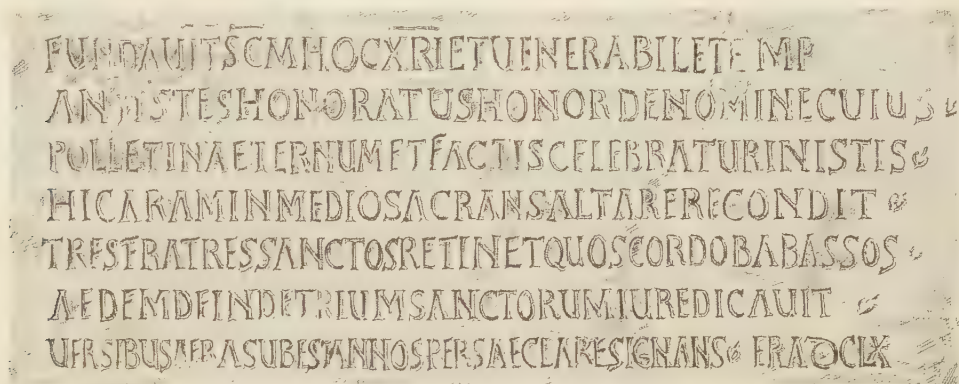 FUNDAUIT S̅C̅M HOC X̅R̅I ET UENERABILE TEMP
ANTISTES HONORATUS HONOR DE NOMINE CUIUS
POLLET IN AETERNUM ET FACTIS CELEBRATUR IN ISTIS
HIC ARAM IN MEDIO SACRANS ALTARE RECONDIT
TRES FRATRES SANCTOS RETINET QUOS CORDOBA BASSOS
AEDEM DEINDE TRIUM SANCTORUM IURE DICAUIT
UERSIBUS AERA SUBEST ANNOS PER SAECLA RESIGNANS ERA DCLX